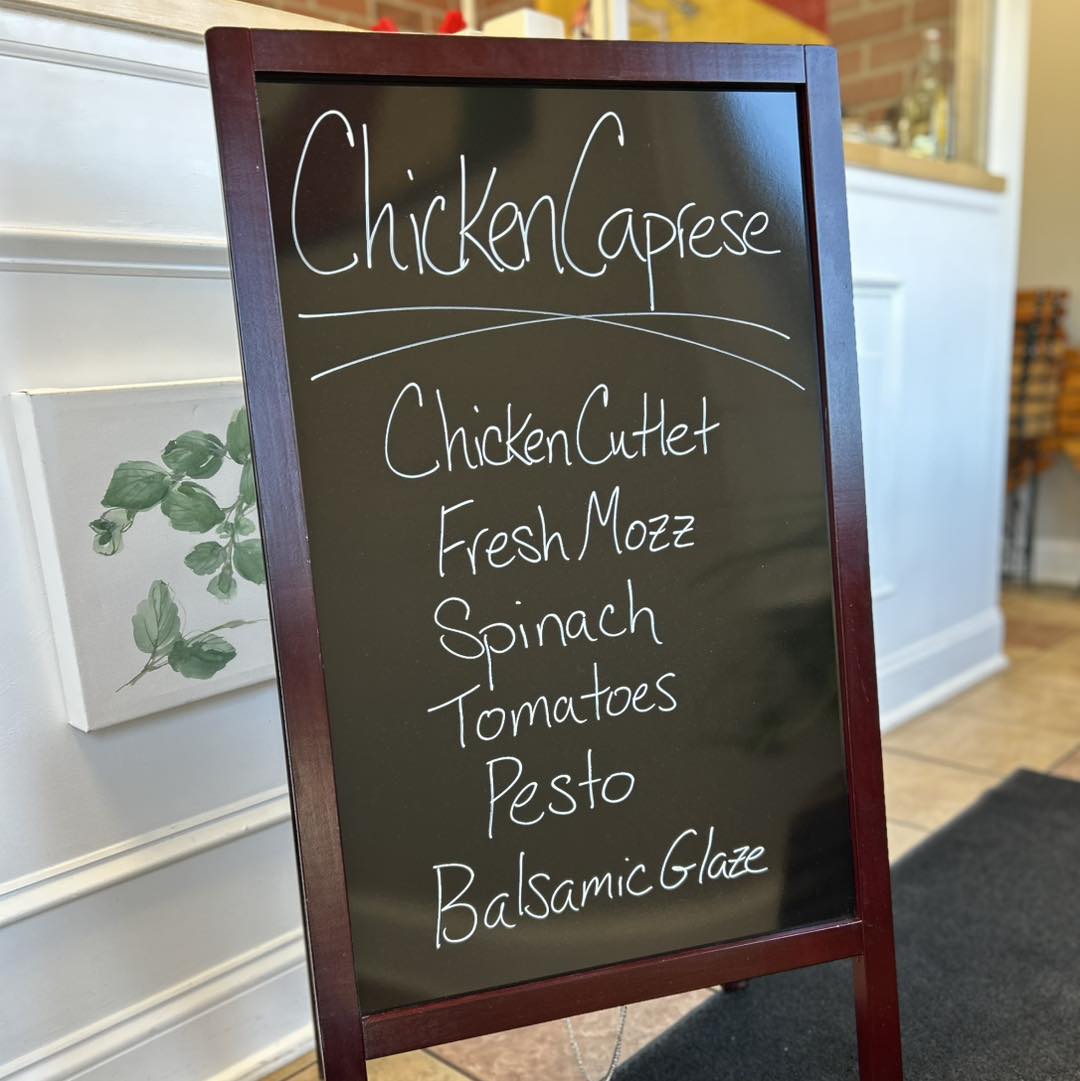 Chicken Caprese
Chicken Cutlet
Fresh Mozz
Spinach
Tomatoes
Pesto
Balsamic Glaze